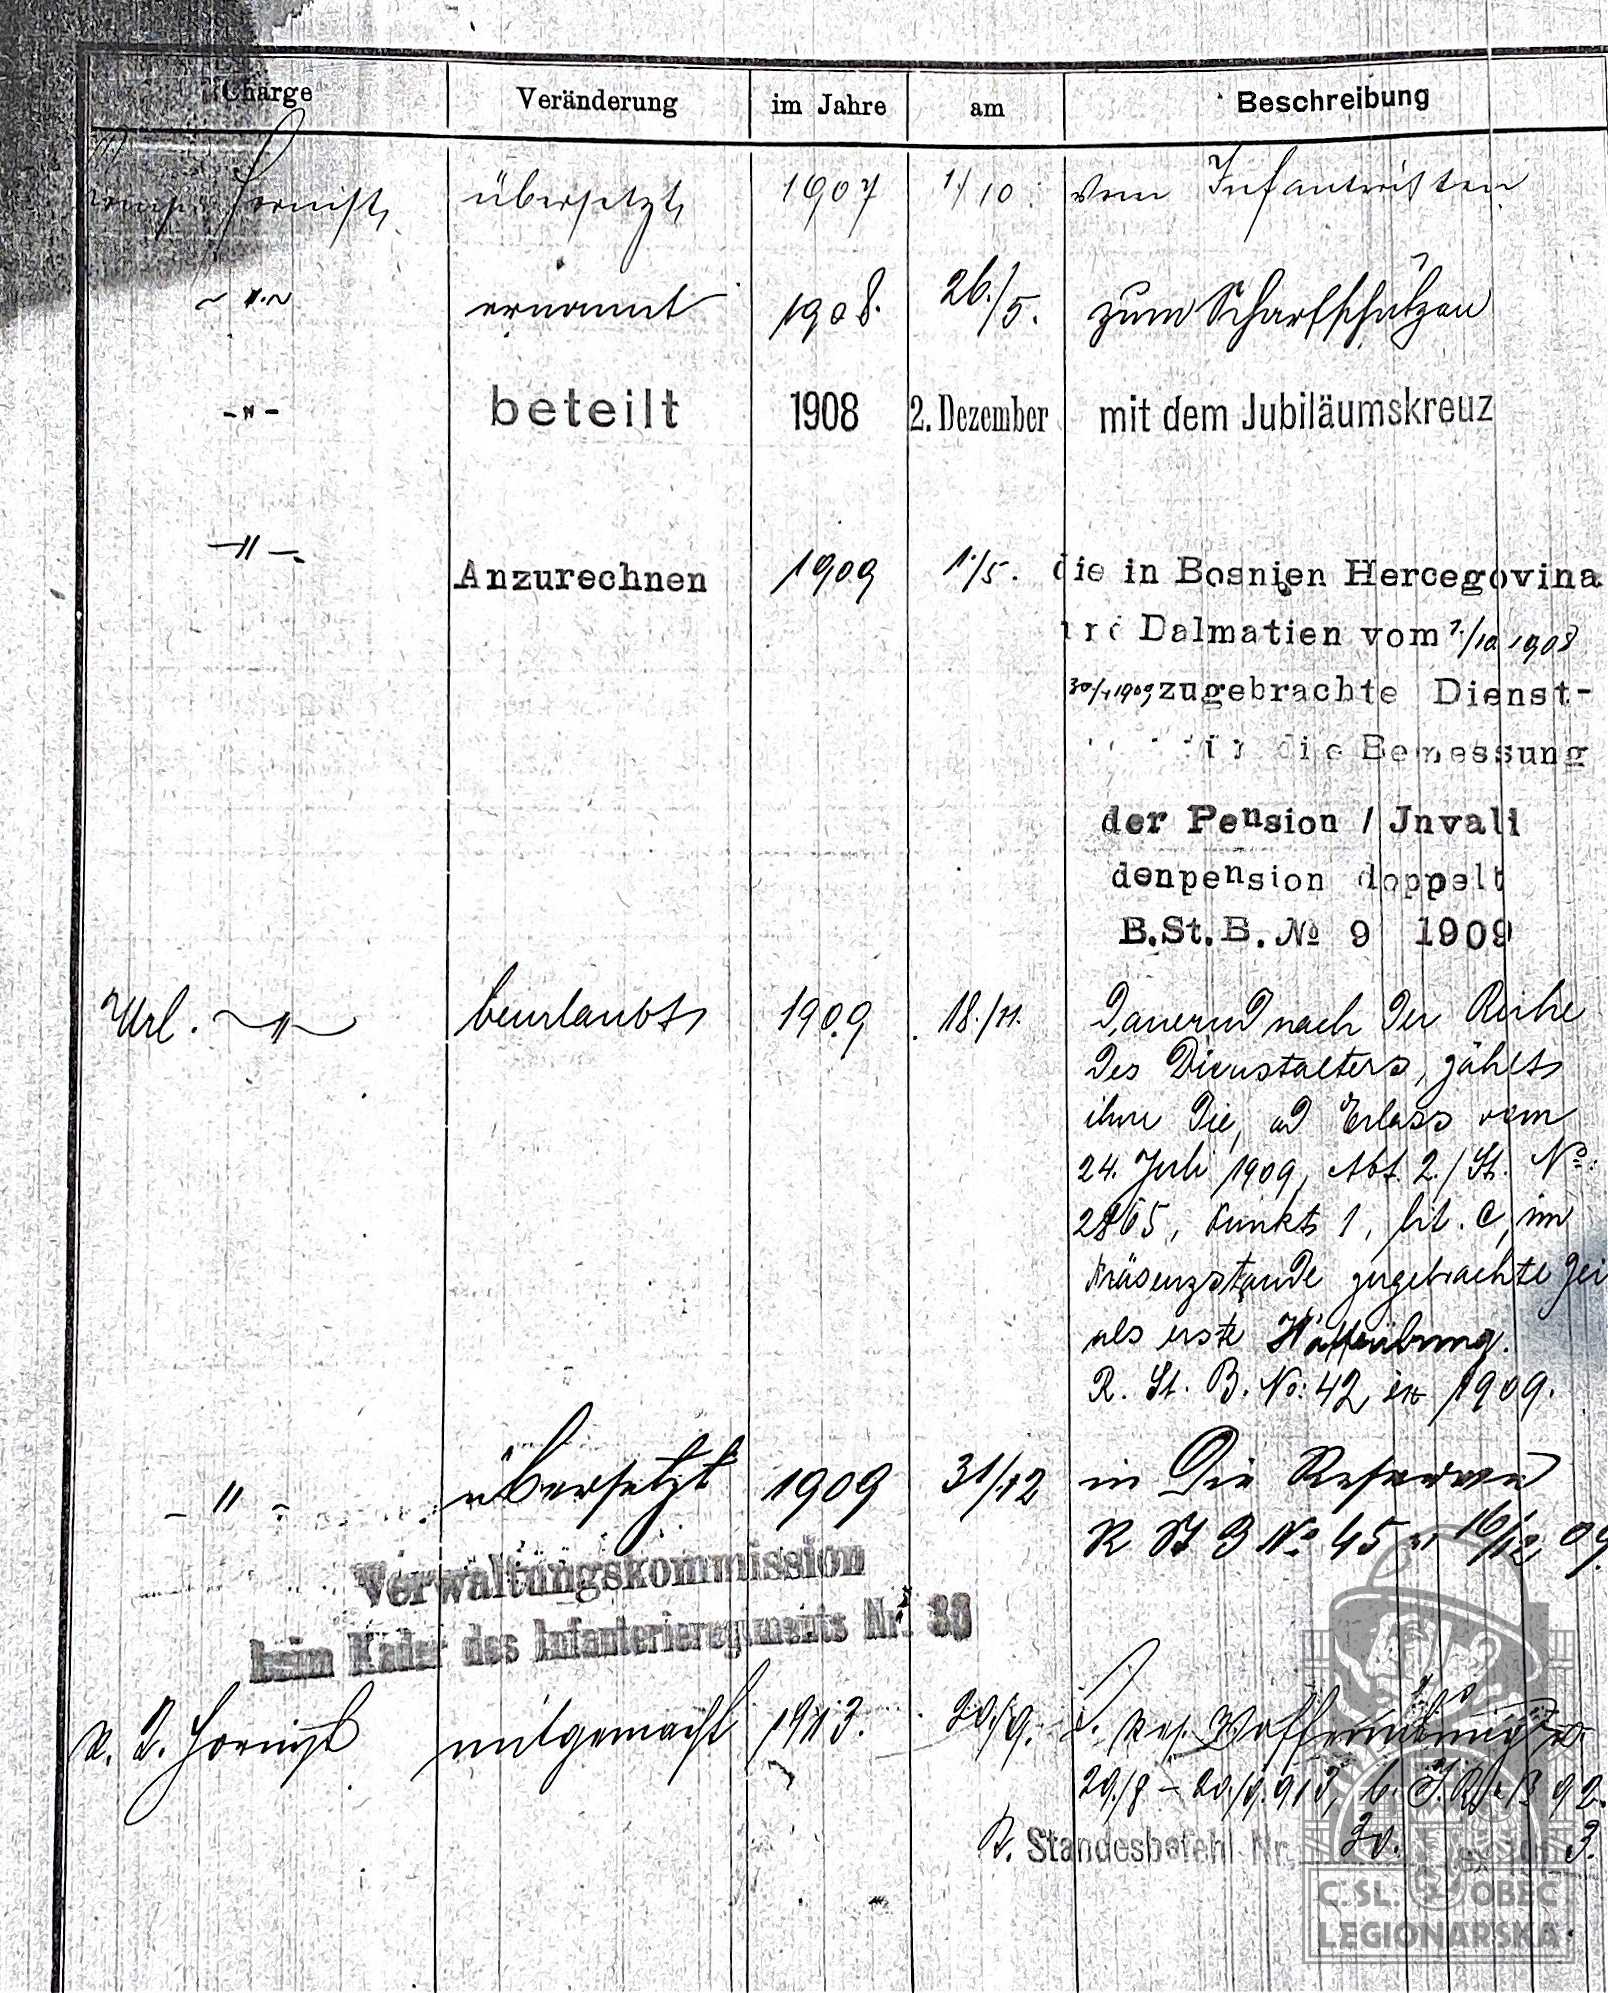 Charge Veränderung im Jahre am Beschreibung
Hornist übersetzt 1907 1/10. vom Infanteristen
~ " ~ ernannt 1908. 26./5. zum Scharfschützen
- " - beteilt 1908 2. Dezember mit dem Jubiläumskreuz
- " - Anzurechnen 1909 1./5. die in Bosnien Hercegovina
und Dalmatien vom 1./10 1908
30/4 1909 zugebrachte Dienst-
für die Bemessung
der Pension / Jnvali
denpension doppelt
B.St.B. No 9 1909
Url. ~ " ~ beurlaubt 1909 18./11. Dauernd nach der Reihe
des Dienstalters, zählt
ihm die, ad Erlass vom
24. Juli 1909, Abt. 2./St. No:
2865, Punkt 1, lit. C, im
Präsenzstande zugebrachte Zei
als erste Waffenübung.
R. St. B. No: 42 ex 1909.
- " - übersetzt 1909 31/12 in die Reserve
R St B No 45 v 16/12 09.
Verwaltungskommission
beim Kader des Infanterieregiments Nr.
R. Hornist mitgemacht 1913. 20./9. Waffenübung v.
R. Standesbefehl Nr. 30. 3.
Č.SL. OBEC
LEGIONÁŘSKÁ